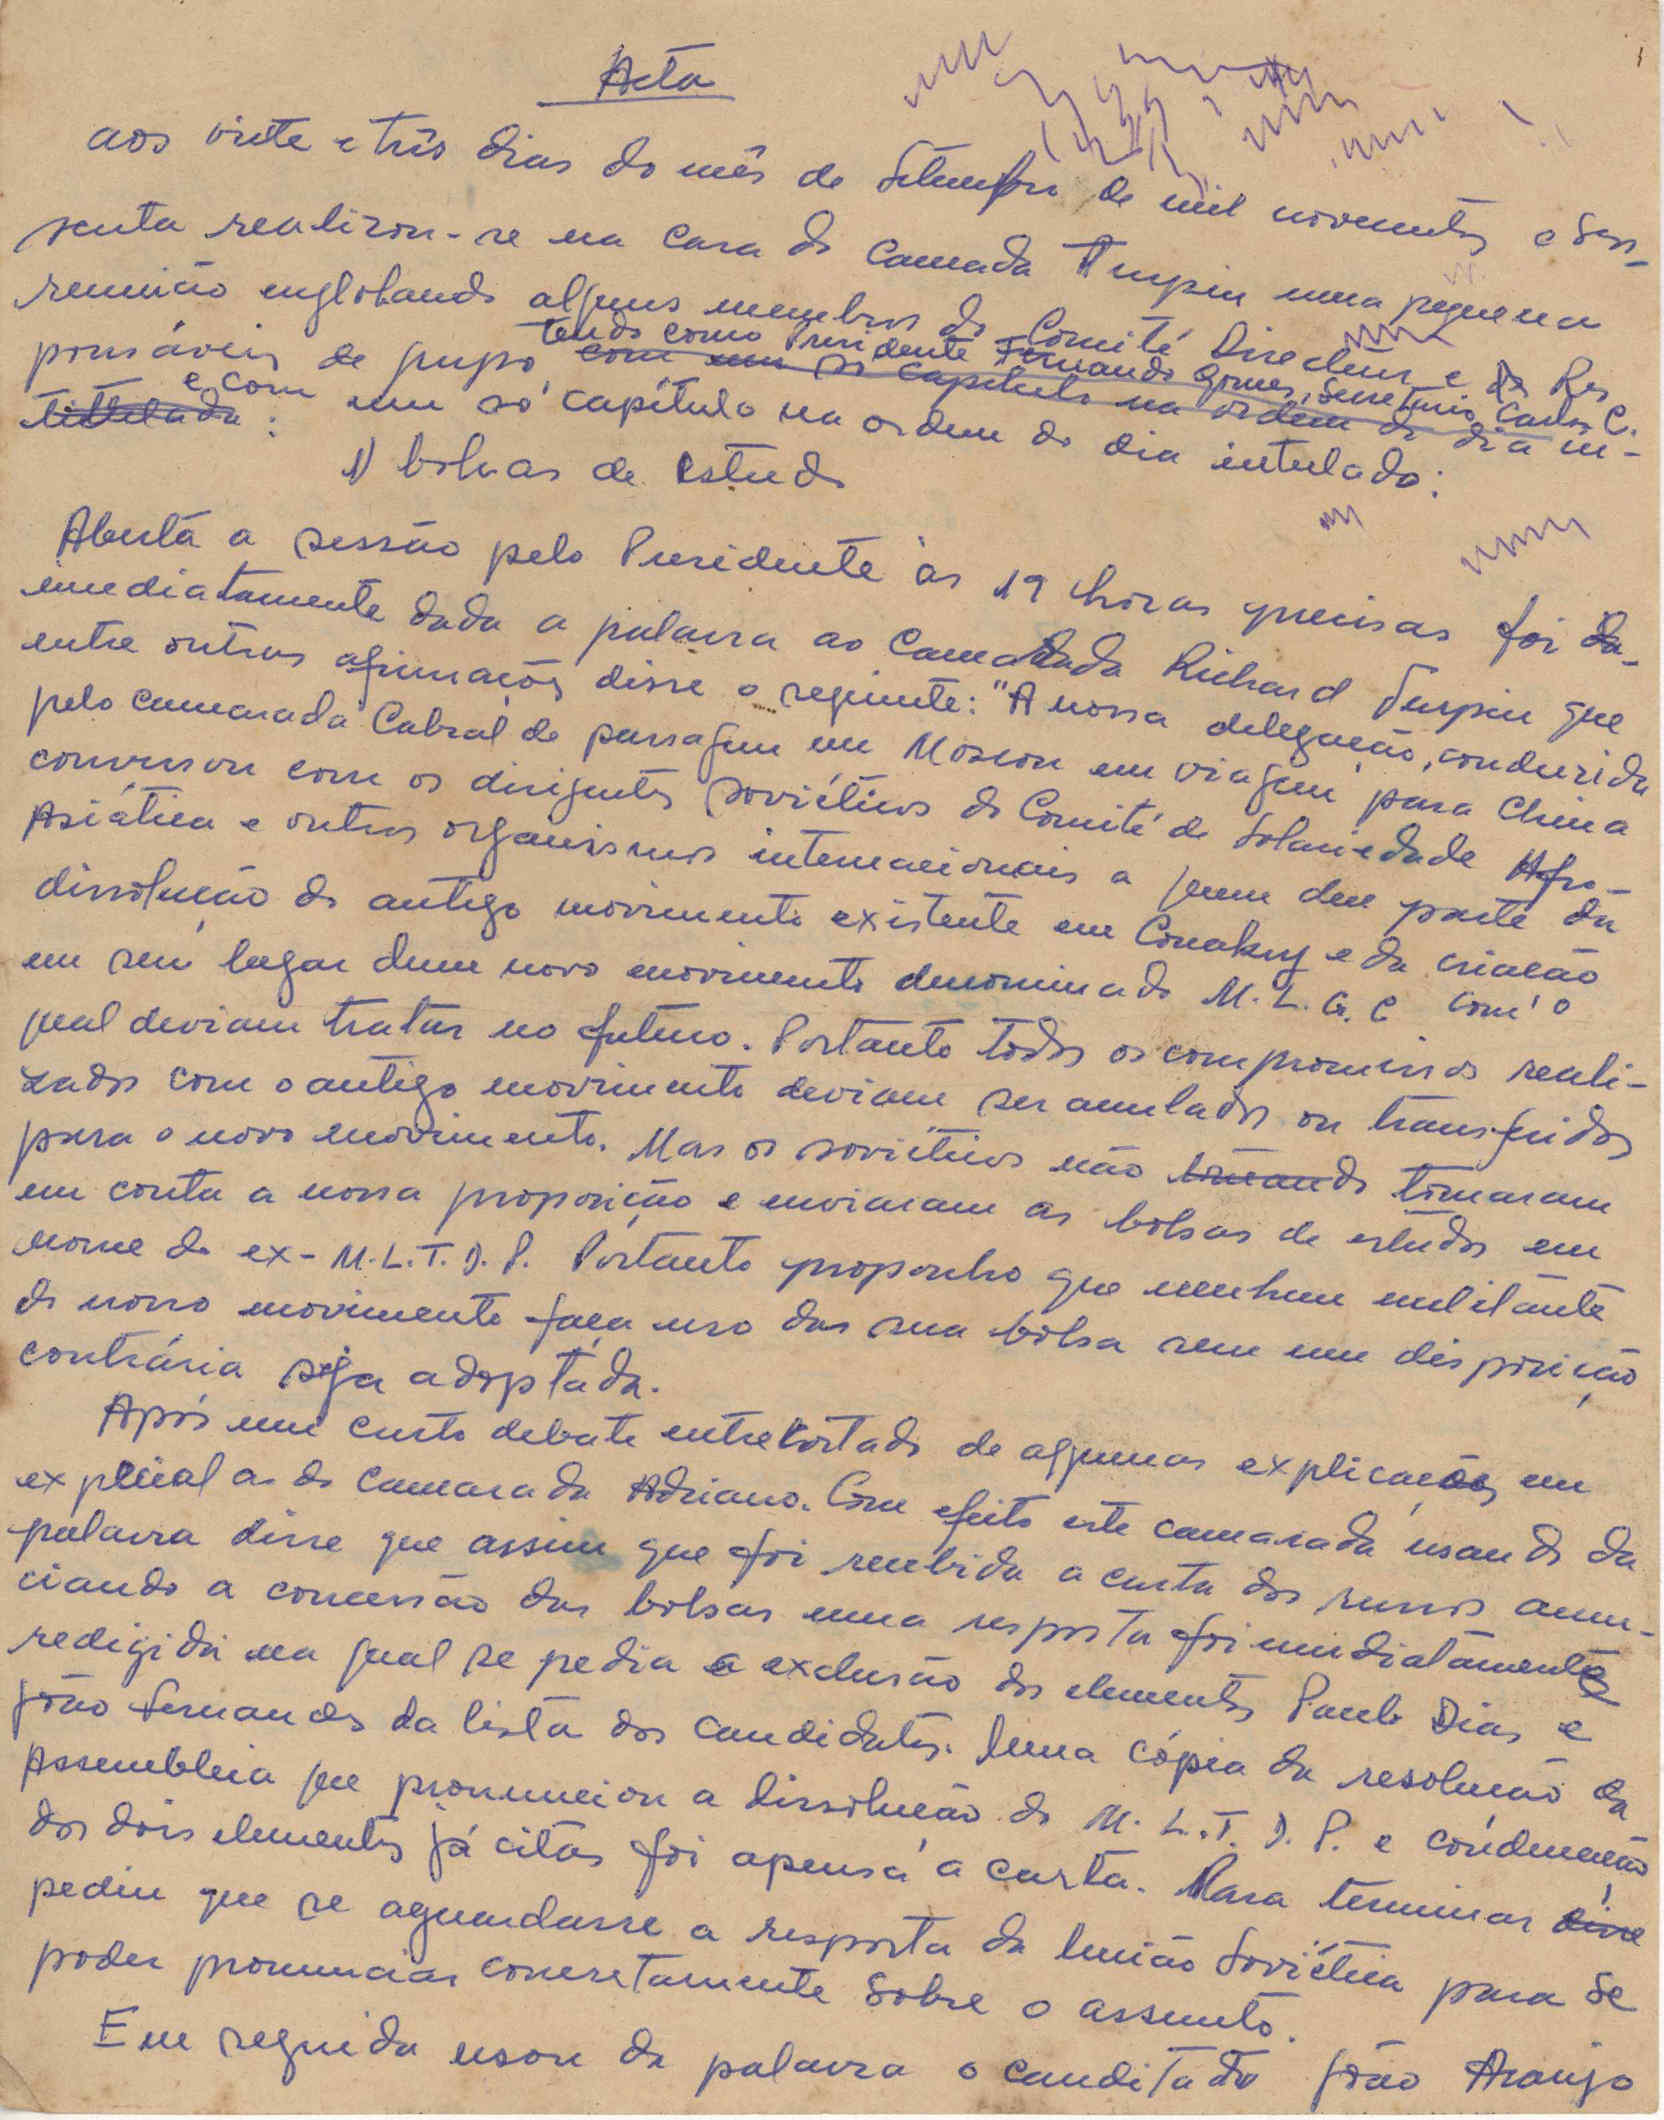 Acta
aos vinte e três dias do mês de Setembro de mil novecentos e ses-
senta realizou-se na casa do camarada Turpin uma pequena
reunião englobando alguns membros do Comité Director e do Res
ponsáveis de grupo tendo como Presidente Fernando Gomes, Secretario Carlos C.
com um só capítulo na ordem do dia in-
titulado: e com um só capítulo na ordem do dia intulado:
1) bolsas de estudo
Aberta a sessão pelo Presidente às 19 horas precisas foi da-
imediatamente dada a palavra ao Camarada Richard Turpin que
entre outras afirmações disse o seguinte: "A nossa delegação, conduzida
pelo camarada Cabral de passagem em Moscou em viagem para China
conversou com os dirigentes soviéticos do Comité de Solariedade Afro-
Asiática e outros organismos internacionais a quem deu parte da
dissolução do antigo movimento existente em Conakry e da criação
em seu lugar dum novo movimento denominado M.L.G.C com o
qual deviam tratar no futuro. Portanto todos os compromissos reali-
zados com o antigo movimento deviam ser anulados ou transferidos
para o novo movimento. Mas os soviéticos não tomando tomaram
em conta a nossa proposição e enviaram as bolsas de estudos em
nome do ex-M.L.T.D.P. Portanto proponho que nenhum militante
do nosso movimento faça uso das sua bolsa sem um disposição
contrária seja adoptada.
Após um curto debate entrecortado de algumas explicações em
especial as do camarada Adriano. Com efeito este camarada usando da
palavra disse que assim que foi recebida a carta dos russos anun-
ciando a concessão das bolsas uma resposta foi imediatamente
redigida na qual se pedia a exclusão dos elementos Paulo Dias e
João Fernandes da lista dos candidatos. Uma cópia da resolução da
Assembleia que pronunciou a dissolução do M.L.T.D.P. e condenação
dos dois elementos já citas foi apensa à carta. Para terminar disse
pediu que se aguardasse a resposta da União Soviética para se
poder pronunciar concretamente sobre o assunto.
Em seguida usou da palavra o canditado João Araujo